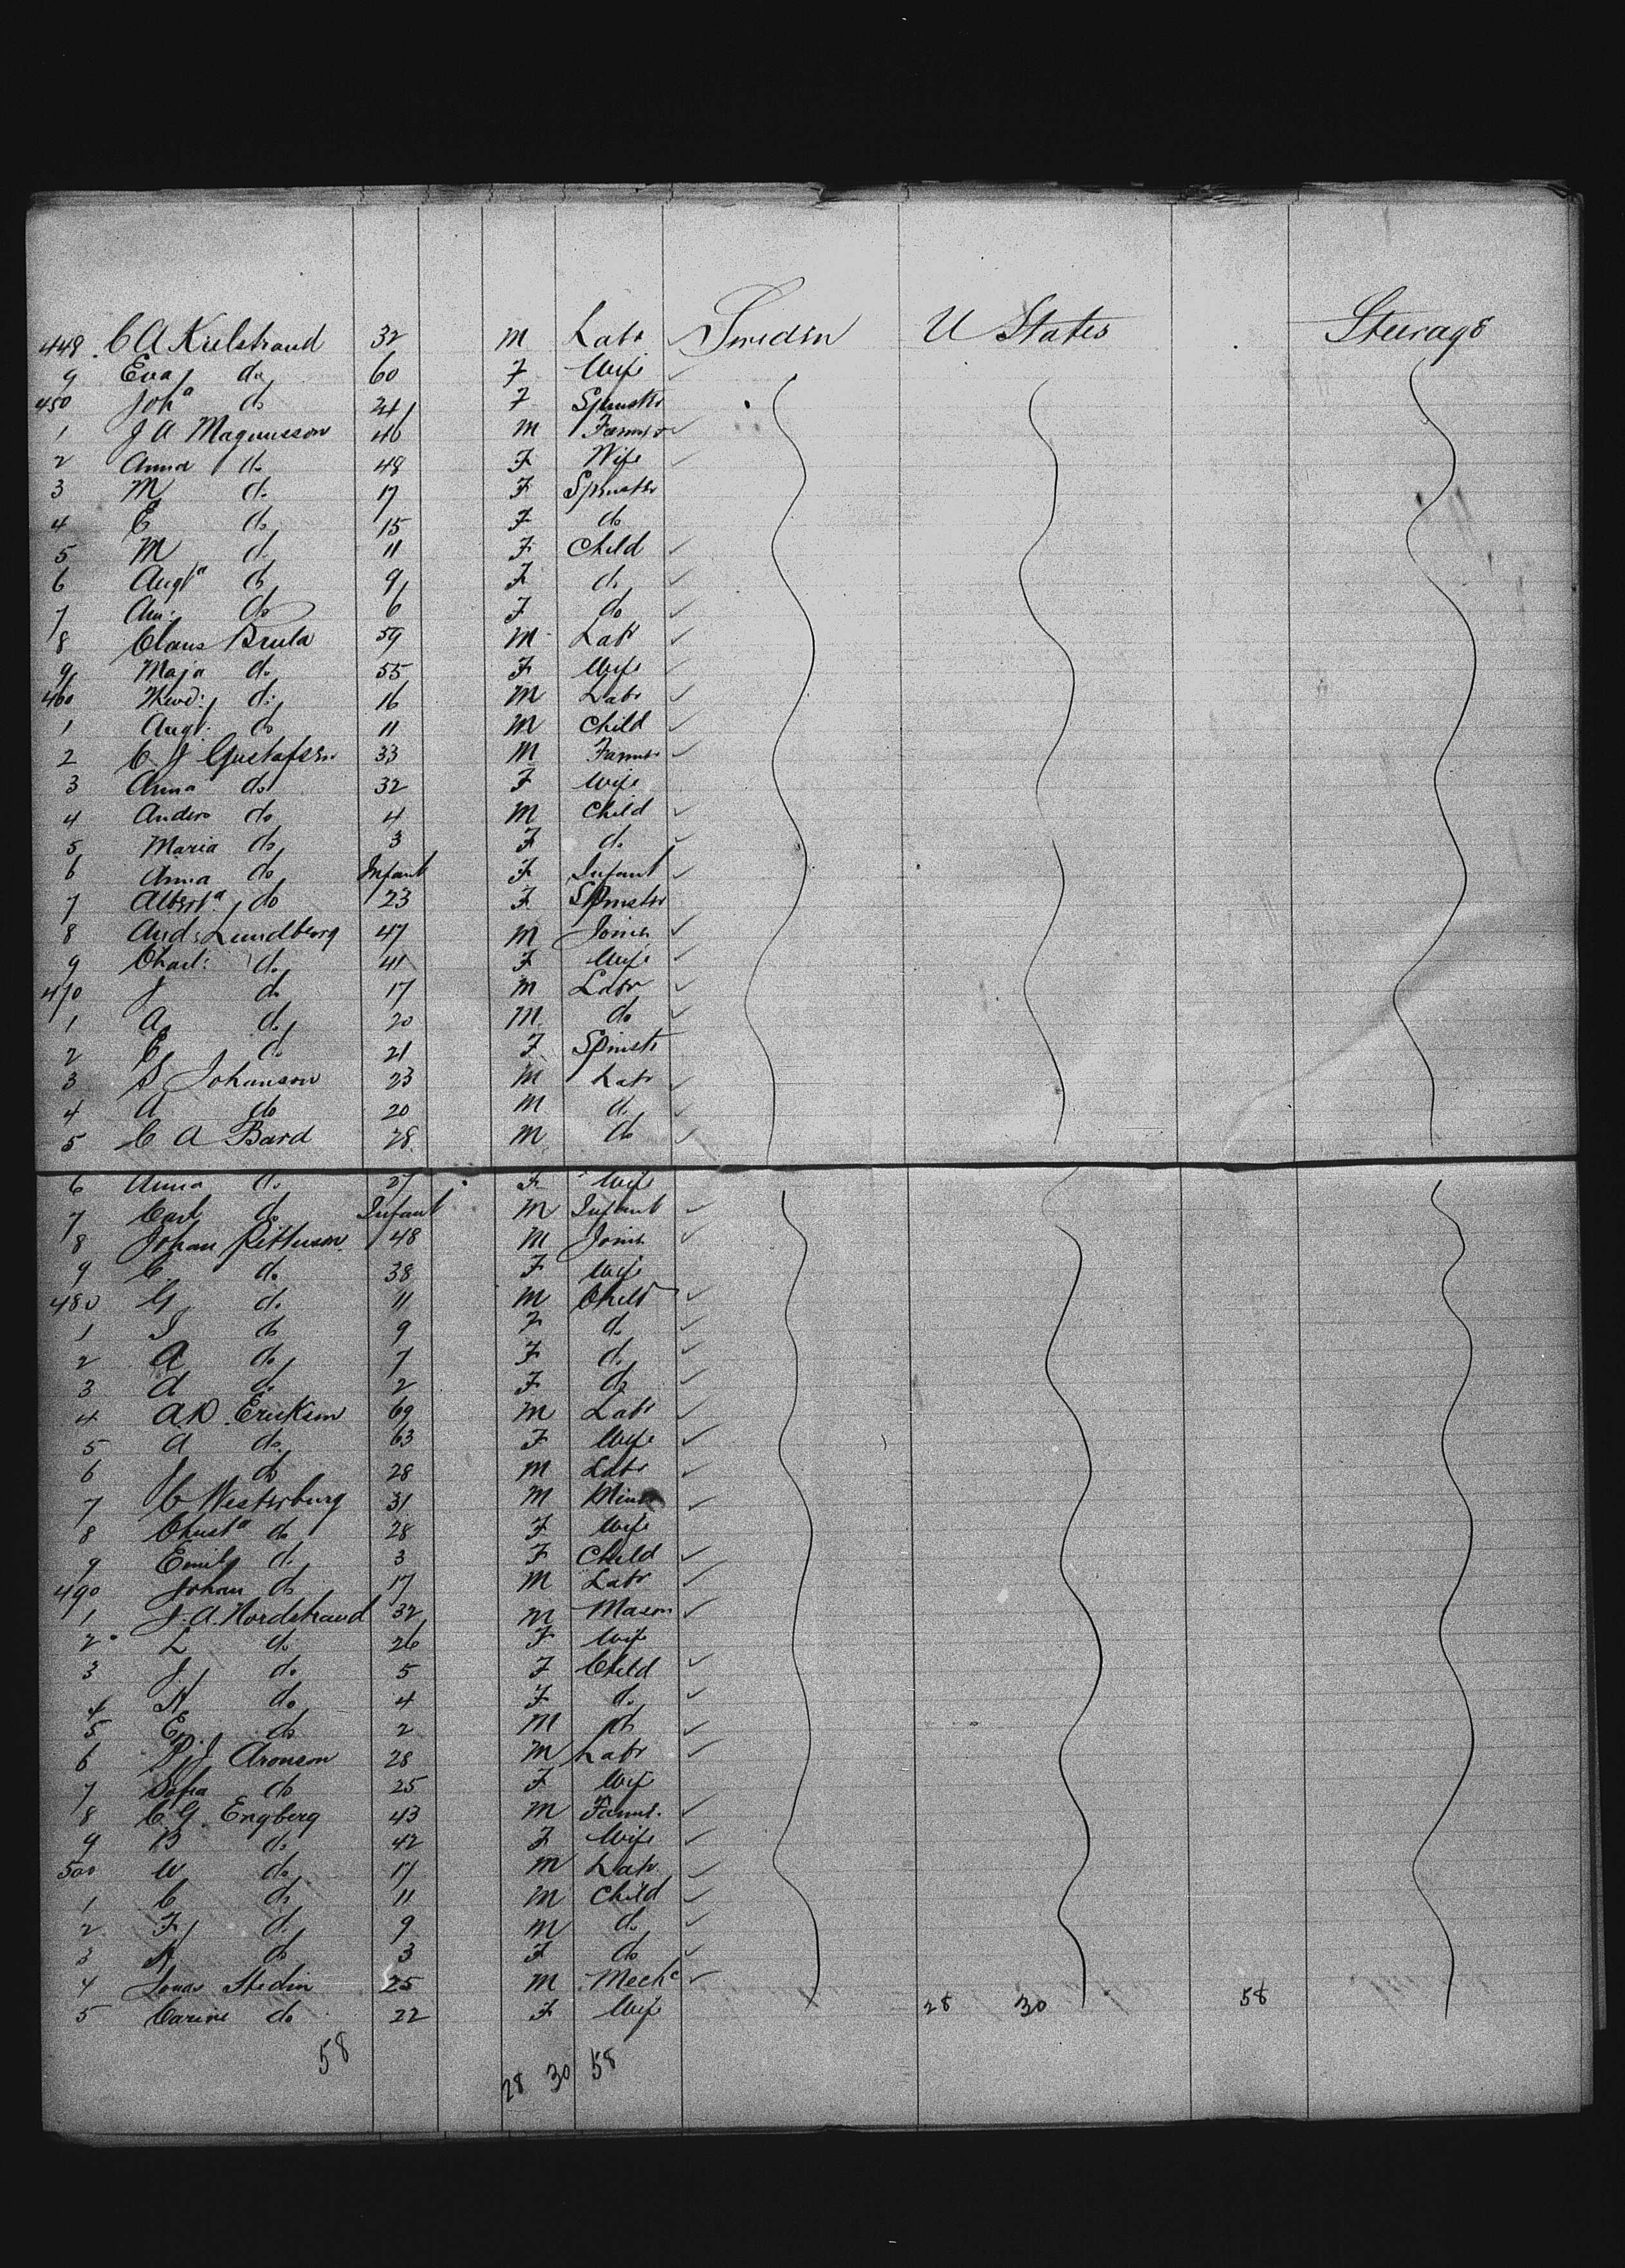 448 C A Kielstrand 32 M Labr Sweden U States Steerage
9 Eva do 60 F Wife
450 Joha do 24 F Spinster
1 J A Magnusson 46 M Farmer
2 Anna do 48 F Wife
3 M do 17 F Spinster
4 C do 15 F do
5 M do 11 F Child
6 Augta do 9 F do
7 do 6 F do
8 Claus Brula 59 M Labr
9 Maja do 55 F Wife
460 do 16 M Labr
1 Augt: do 11 M Child
2 C J Gustafsen 33 M Farmer
3 Anna do 32 F Wife
4 Anders do 4 M Child
5 Maria do 3 F do
6 Anna do Infant F Infant
7 Alberta do 23 F Spinster
8 And: Lundberg 47 M Joiner
9 Charl: do 41 F Wife
470 J do 17 M Labr
1 A do 20 M do
2 C do 21 F Spinstr
3 S Johanson 23 M Labr
4 A do 20 M do
5 C A Bard 28 M do
6 Anna do 27 F Wife
7 Carl do Infant M Infant
8 Johan Petterson 48 M Joiner
9 C do 38 F Wife
480 G do 11 M Child
1 I do 9 F do
2 A do 7 F do
3 A do 2 F do
4 A D Erickson 69 M Labr
5 A do 63 F Wife
6 J do 28 M Labr
7 C Westerburg 31 M Miner
8 Christa do 28 F Wife
9 Emily do 3 F Child
490 Johan do 17 M Labr
1 J. A. Nordstrand 32 M Mason
2 L do 26 F Wife
3 J do 5 F Child
4 H do 4 F do
5 E do 2 M do
6 J Aronson 28 M Labr
7 Sofia do 25 F Wife
8 C. G. Engberg 43 M Farmr.
9 B do 42 F Wife
500 W do 17 M Labr
1 C do 11 M Child
2 F do 9 M do
3 H do 3 F do
4 Jonas Stedin 25 M Mechc
5 Carine do 22 F Wife 28 30 58
58 28 30 58